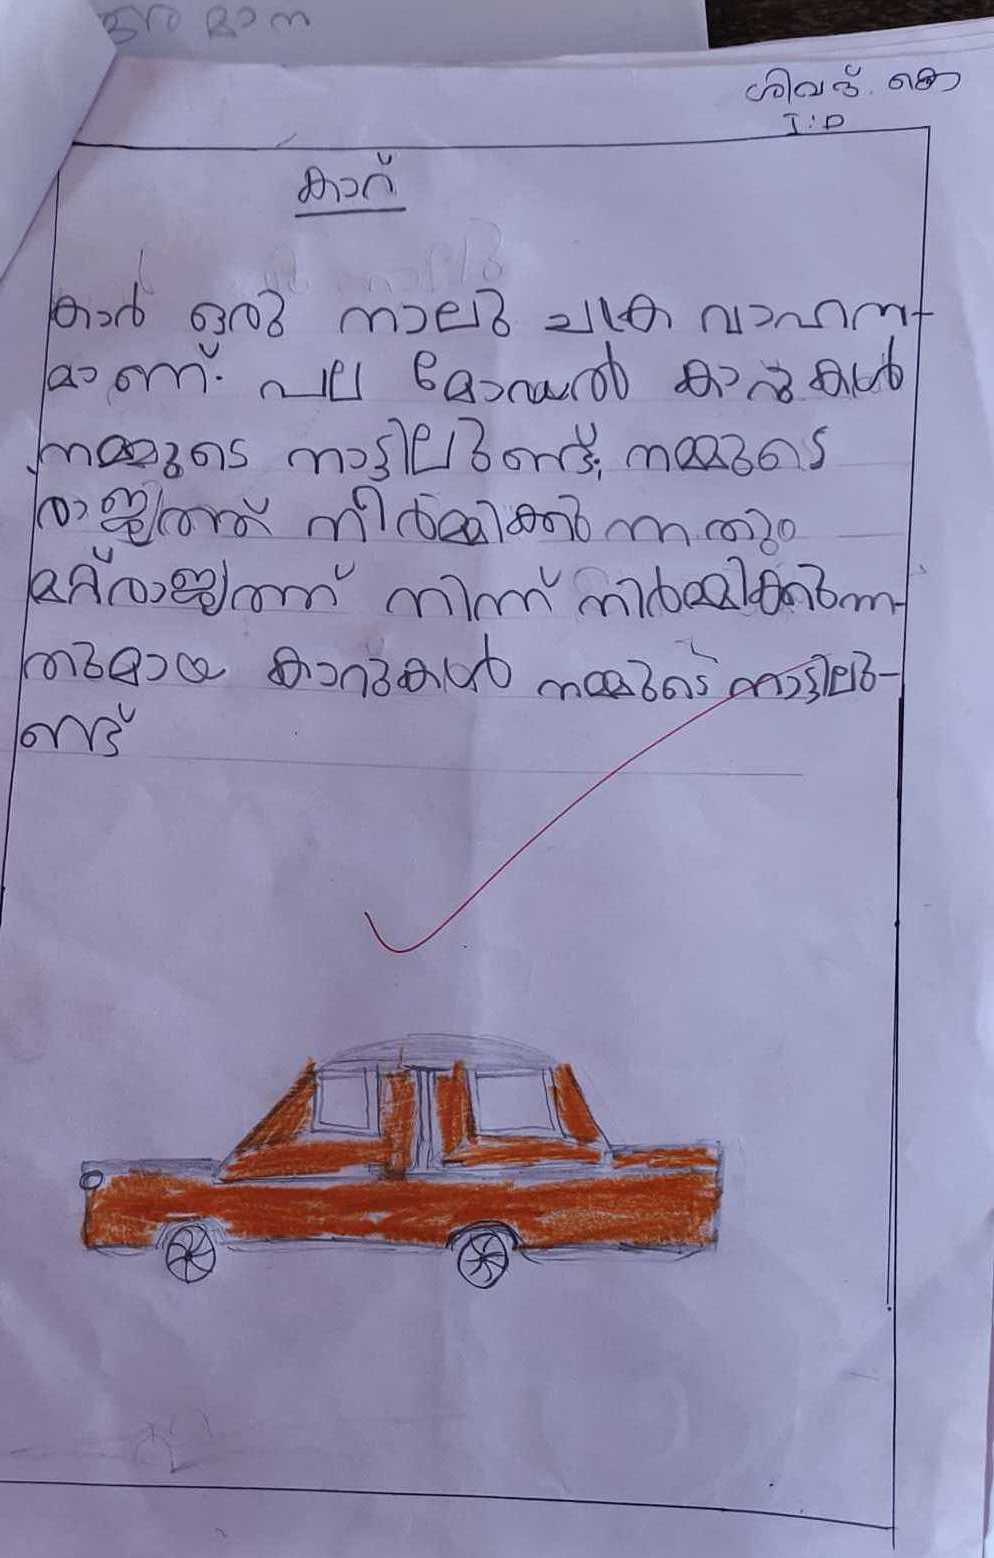 ശിവദ്. കെ
I:D
കാറ്
കാർ ഒരു നാലു ചക്ര വാഹന-
മാണ്. പല മോഡൽ കാറുകൾ
നമ്മുടെ നാട്ടിലുണ്ട്. നമ്മുടെ
രാജ്യത്ത് നിർമ്മിക്കുന്നതും
മറ്റ് രാജ്യത്ത് നിന്ന് നിർമ്മിക്കുന്ന-
തുമായ കാറുകൾ നമ്മുടെ നാട്ടിലു-
ണ്ട്